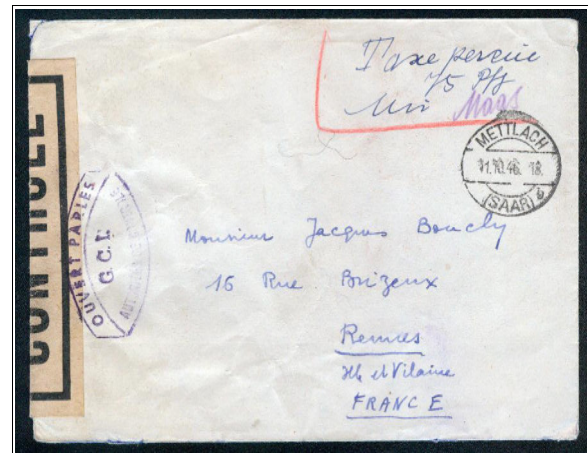 Taxe percue
75 Pfg
Maas
METTLACH
11.10.46. 18.
(SAAR)
CONTROLE
OUVERT PAR LES
G.C.I.
Monsieur Jacques Boucly
16 Rue Brizeux
Rennes
Ille et Vilaine
FRANCE